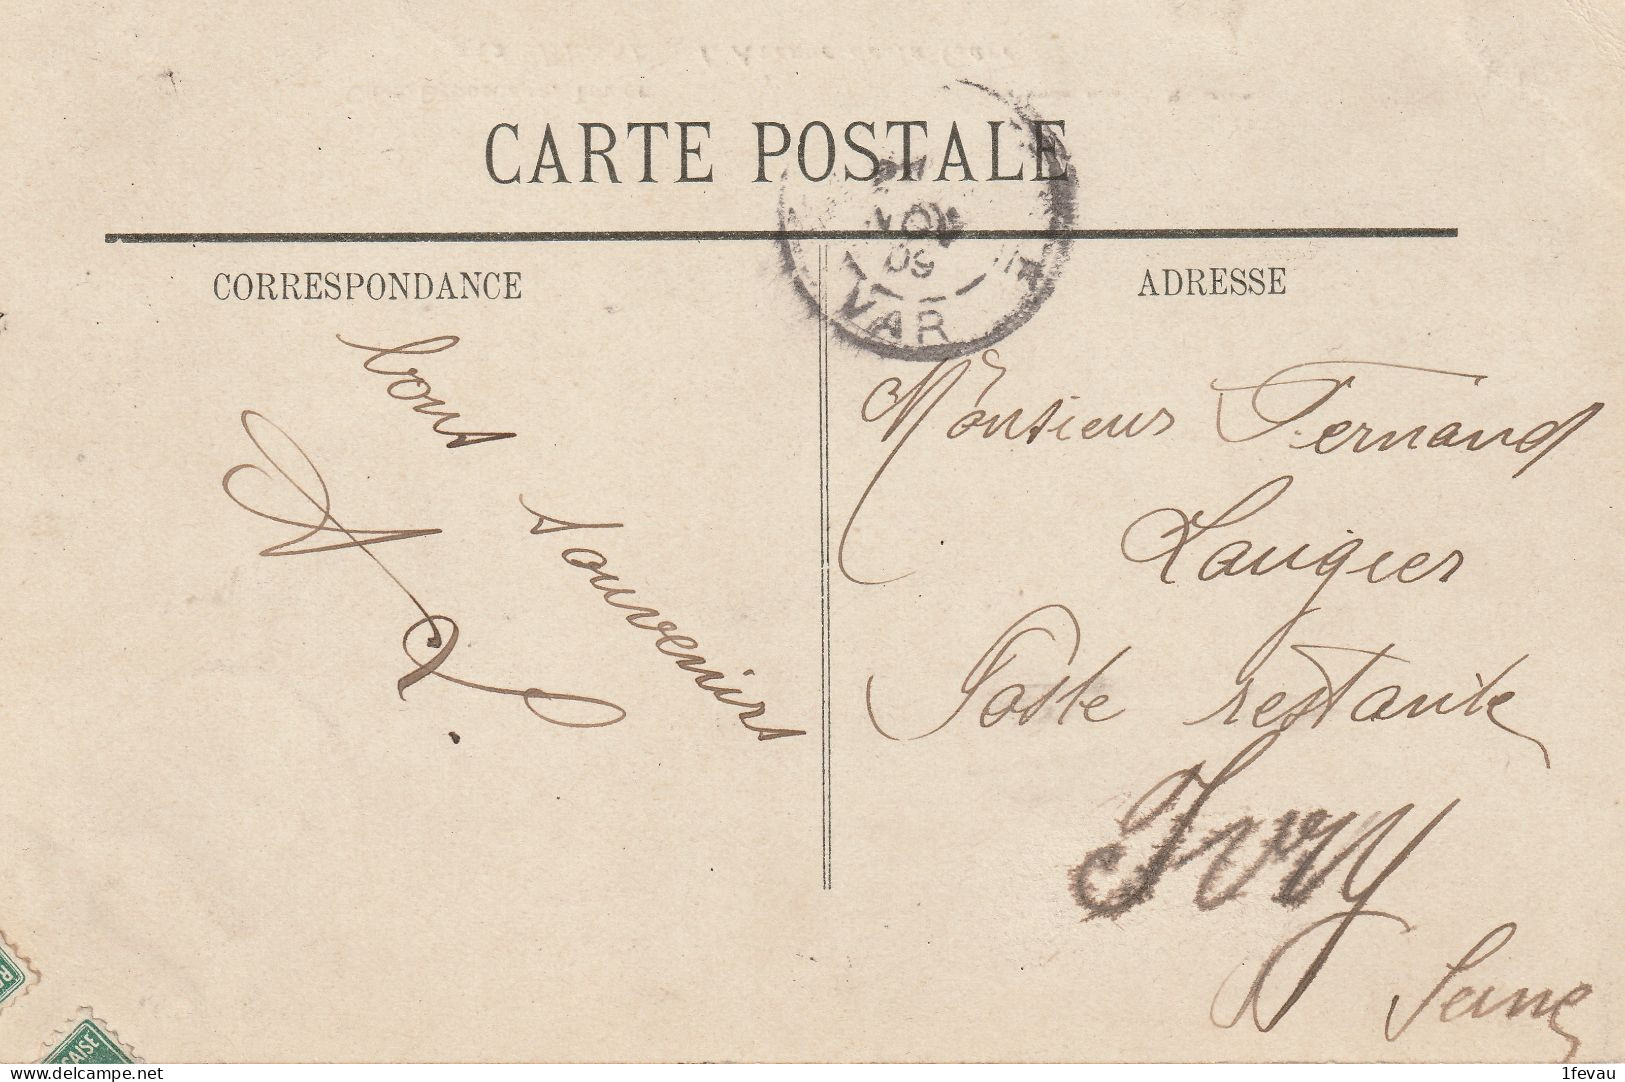 CARTE POSTALE
NOV
09
VAR
CORRESPONDANCE
ADRESSE
bons
souvenirs
Monsieur Fernand
Laugier
Poste restante
Ivry
Seine
AISE
1fevau